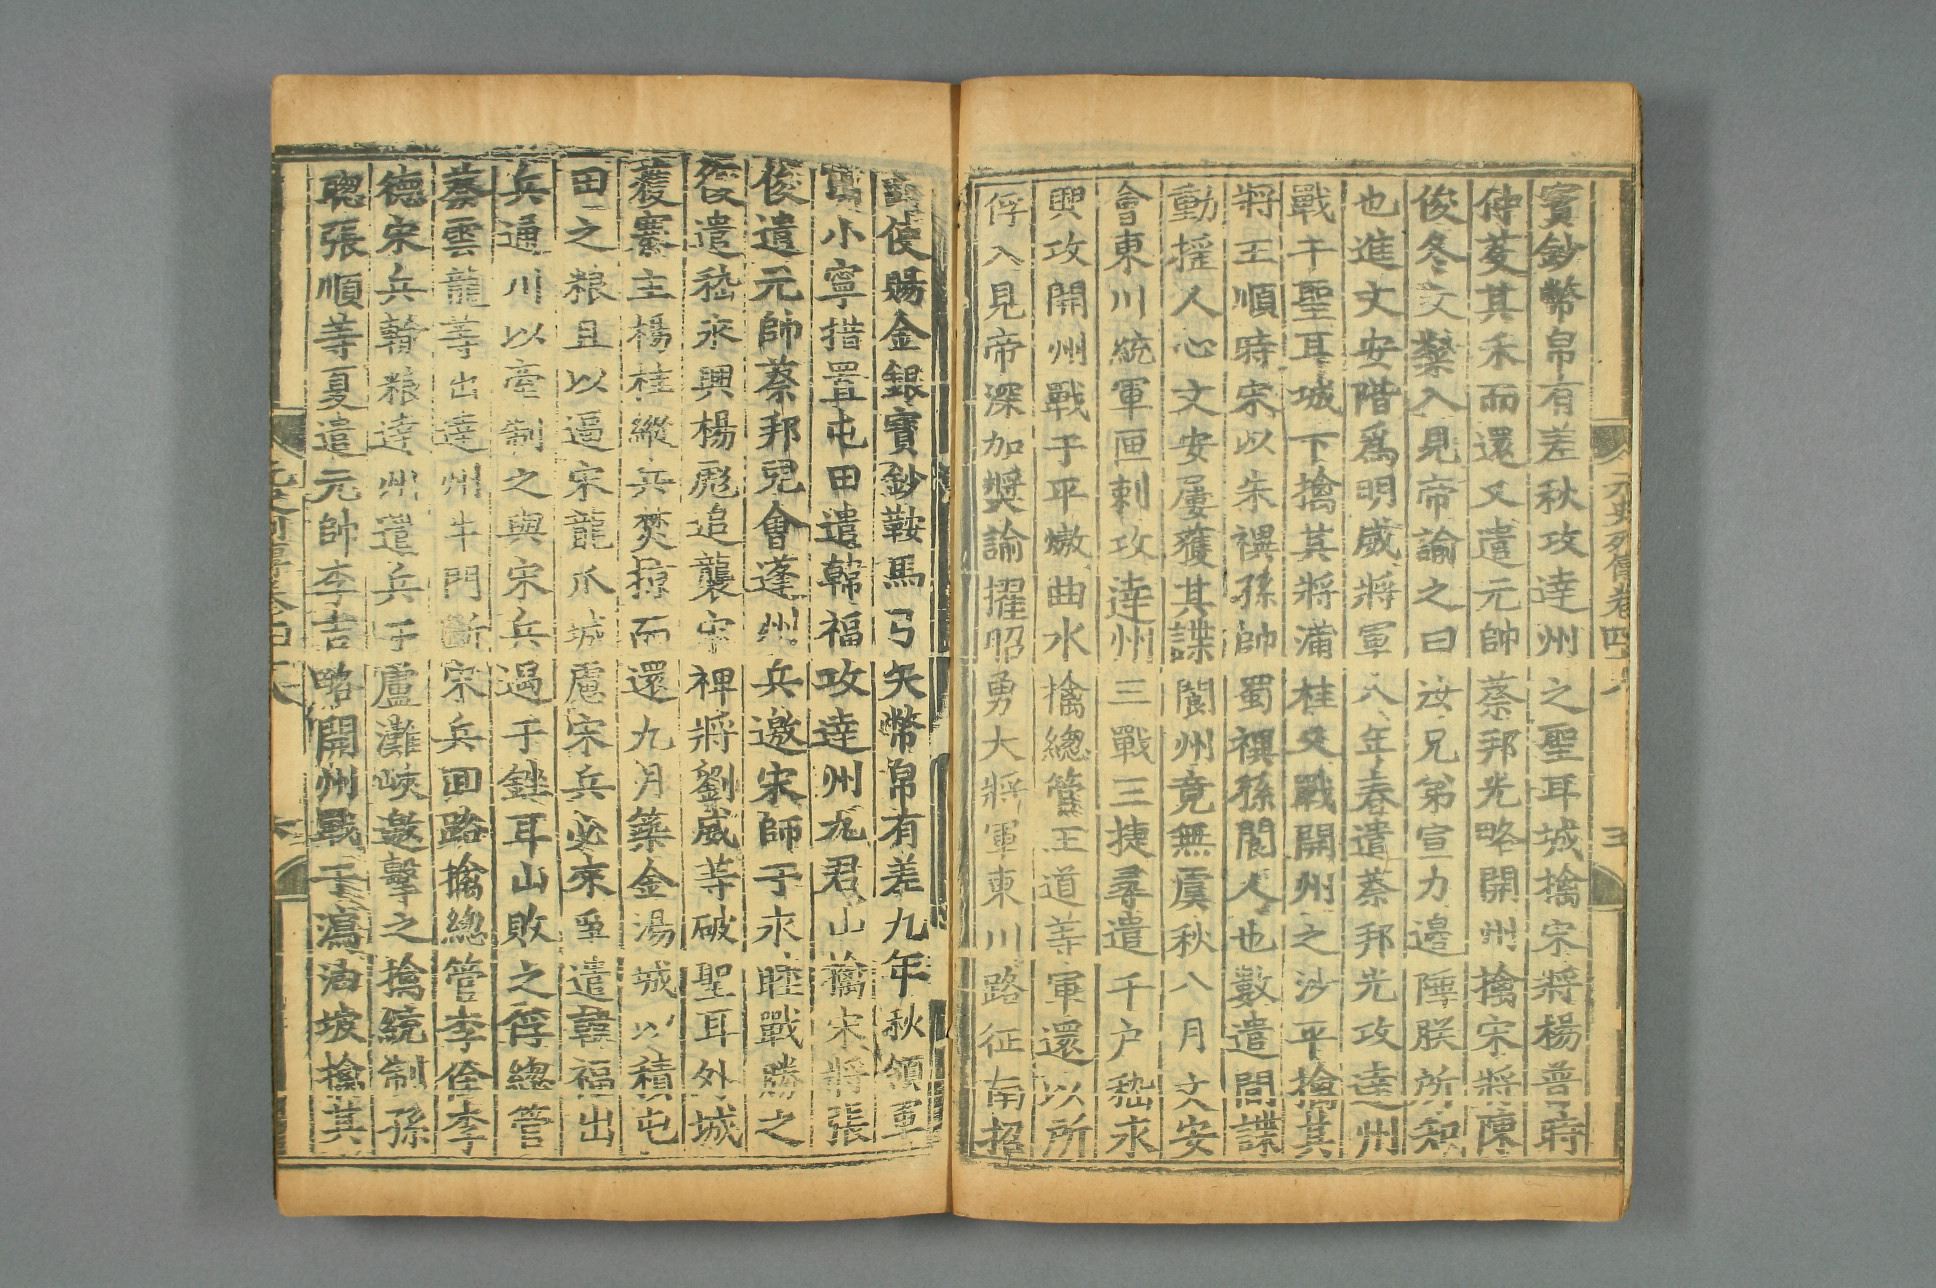 寳鈔幣帛有差秋攻達州之聖耳城擒宋將楊普時
仲芟其禾而還又遣元帥蔡邦光略開州擒宋將陳
俊冬文粲入見帝諭之曰汝兄弟宣力邊陲朕所知
也進文安階爲明威將軍八年春遣蔡邦光攻達州
戰于聖耳城下擒其將蒲桂又戰開州之沙平擒其
將王順時宋以朱禩孫帥蜀禩孫閬人也數遣間諜
動揺人心文安屢獲其諜閬州竟無虞秋八月文安
會東川統軍匣剌攻達州三戰三捷尋遣千户嵇永
興攻開州戰于平燉曲水擒總管王道等軍還以所
俘入見帝深加奬諭擢昭勇大將軍東川路征南招
討使賜金銀寳鈔鞍馬弓矢幣帛有差九年秋領軍
出小寧措置屯田遣韓福攻達州九君山擒宋將張
俊遣元帥蔡邦兒會蓬州兵邀宋師于永睦戰勝之
復遣嵇永興楊彪追襲宋禆將劉威等破聖耳外城
獲寨主楊桂縱兵焚掠而還九月築金湯城以積屯
田之粮且以逼宋龍爪城慮宋兵必來爭遣韓福出
兵通川以牽制之與宋兵遇于銼耳山敗之俘總管
蔡雲龍等出達州牛門斷宋兵回路擒總管李佺李
德宋兵輸粮達州遣兵于盧灘峽邀擊之擒統制孫
聰張順等夏遣元帥李吉略開州戰于瀉油坡擒其
元史列傳卷四十八
五